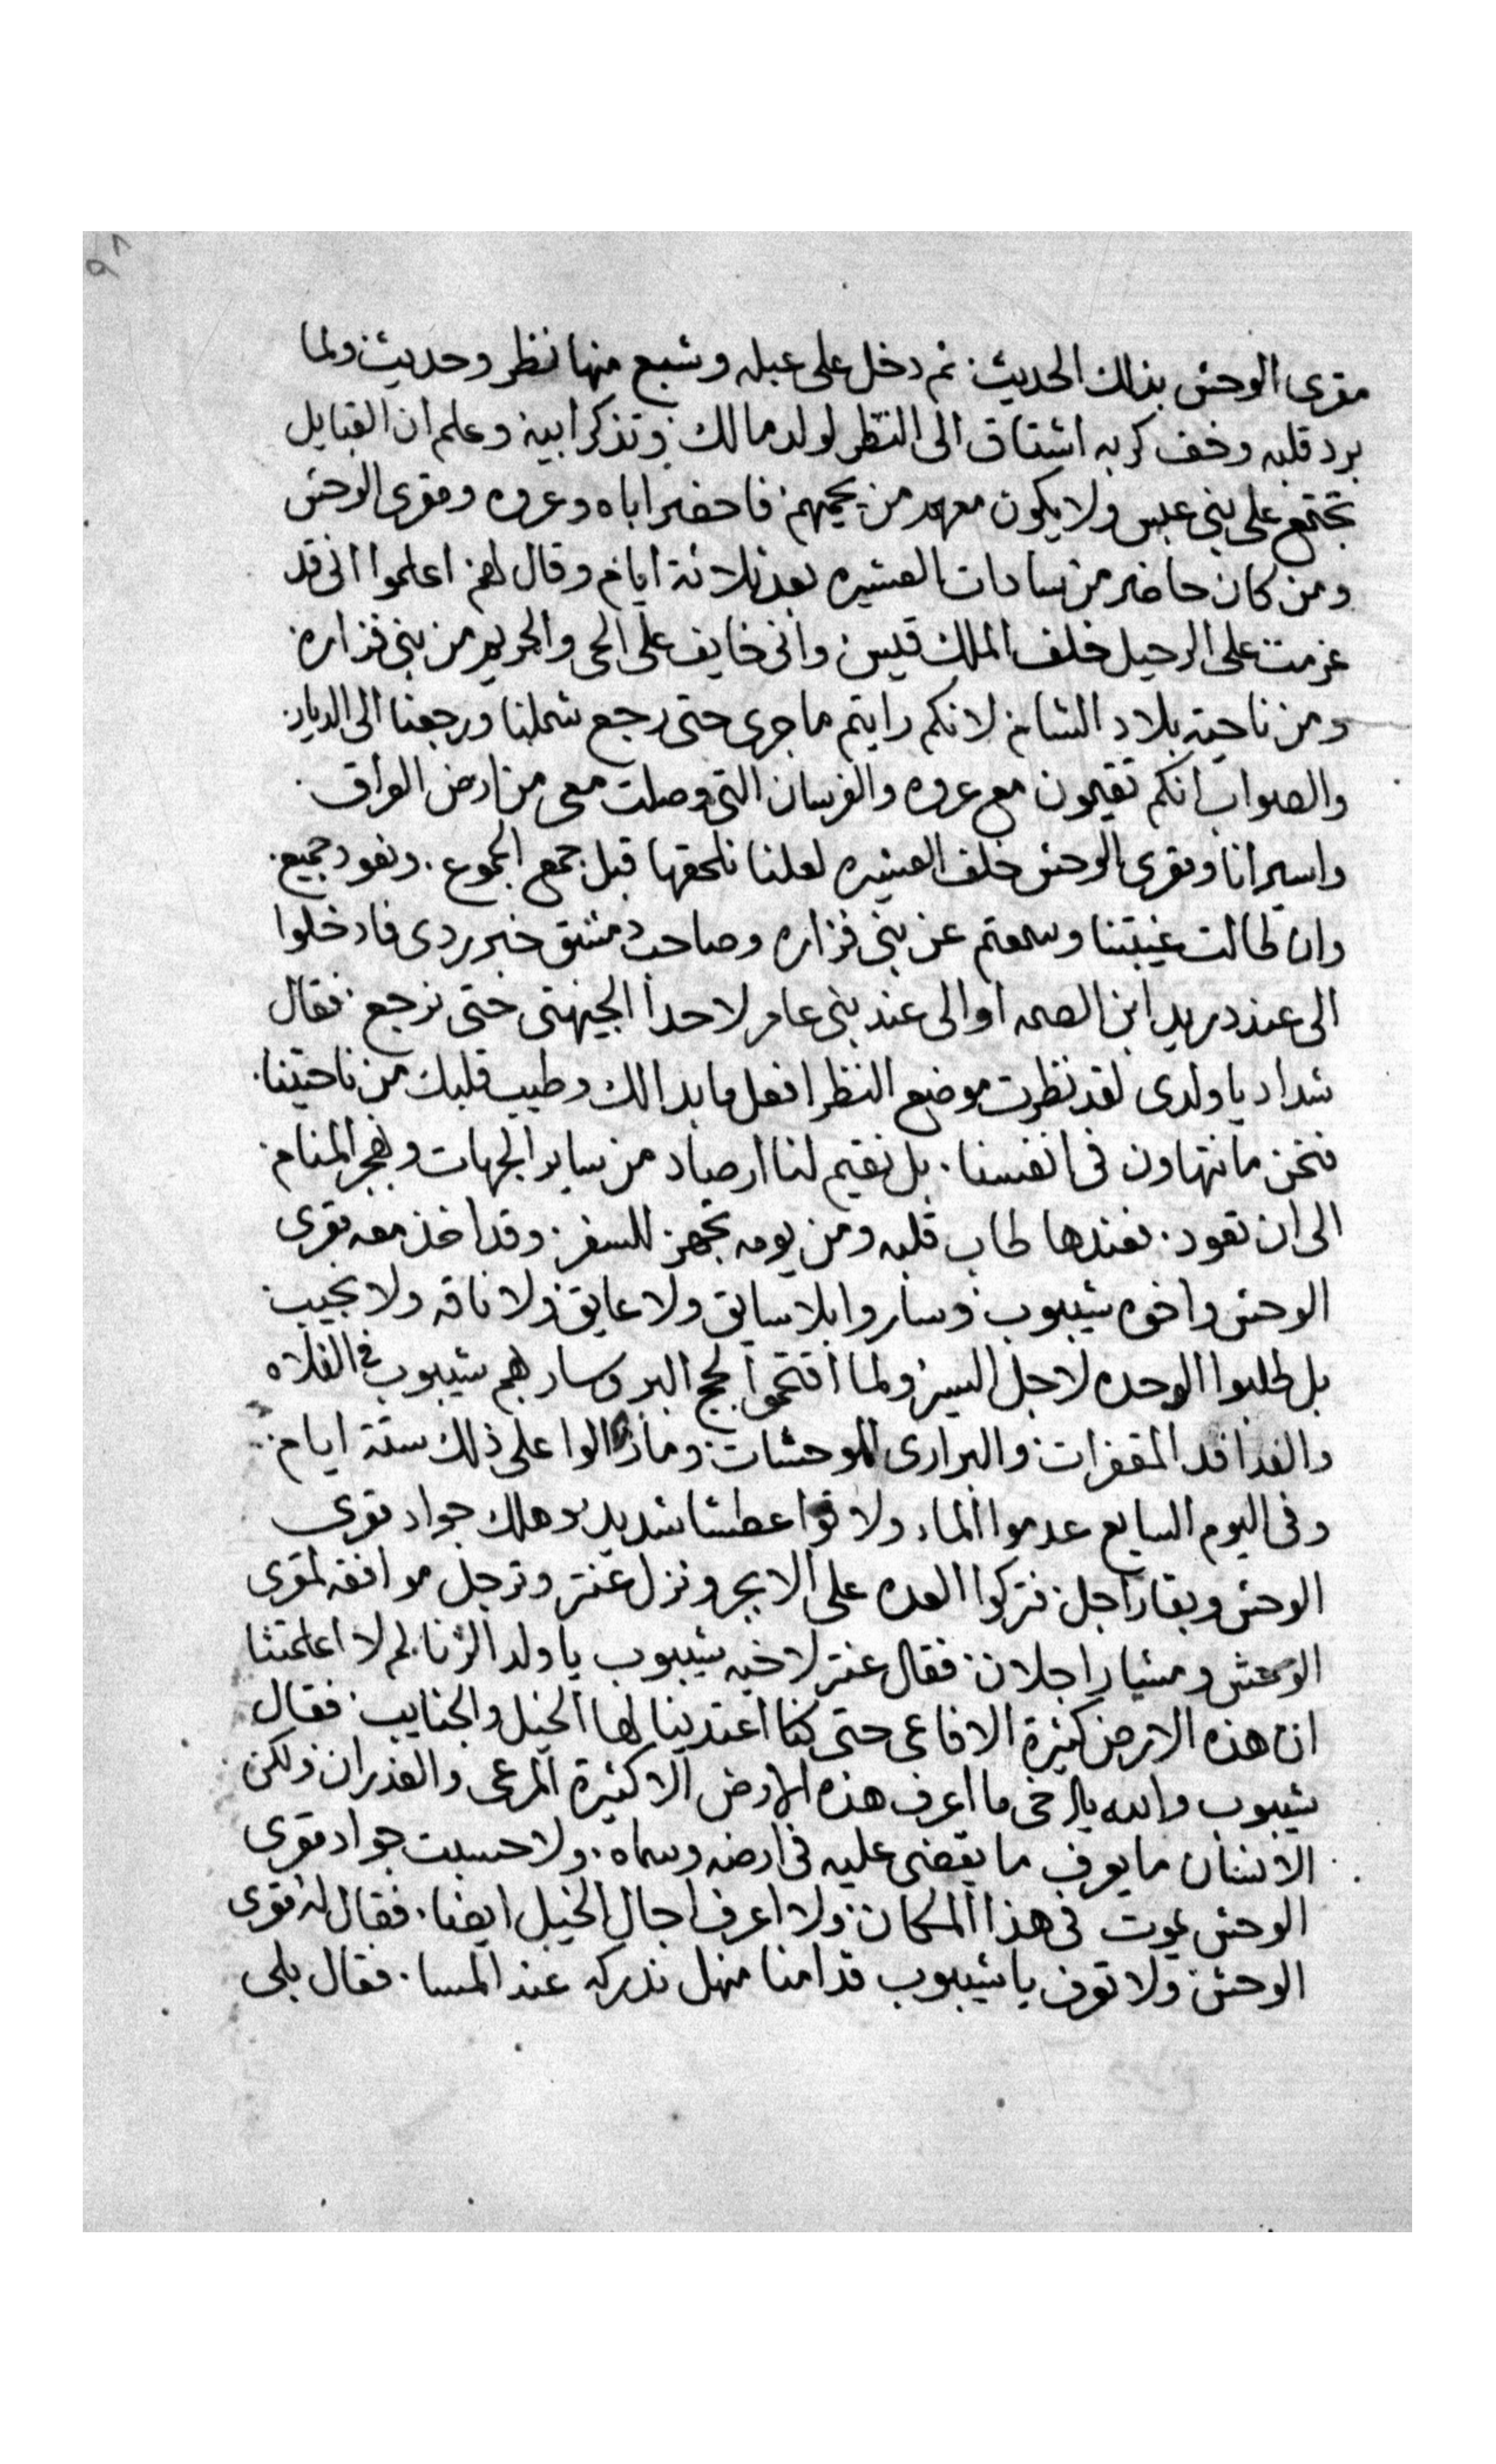 ٩٨
مقرى الوحش بذلك الحديث. ثم دخل على عبله وشبع منها نظر وحديث. ولما
برد قلبه وخف كربه اشتاق الى النظر لولد مالك. وتذكر ابيه وعلم ان القبايل
تجتمع على بنى عبس ولا يكون معهم من يحميهم. فاحضر اباه وعروه ومقرى الوحش
ومن كان حاضر من سادات العشيره بعد ثلاثة ايام وقال لهم اعلموا انى قد
عزمت على الرحيل خلف الملك قيس وانى خايف على الحى والحريم من بنى فزاره.
ومن ناحية بلاد الشام لانكم رايتم ما جرى حتى رجع شملنا ورجعنا الى الديار.
والصواب انكم تقيمون مع عروه والفرسان التى وصلت معى من ارض العراق.
واسير انا ومقرى الوحش خلف العشيره لعلنا نلحقها قبل جمع الجموع. ونعود جميع.
وان طالت غيبتنا وسمعتم عن بنى فزاره وصاحب دمشق خبر ردى فادخلوا
الى عند دريد ابن الصمه او الى عند بنى عامر لاحدا الجيهتى حتى نرجع. فقال
شداد يا ولدى لقد نظرت موضع النظر افعل ما بدا لك وطيب قلبك من ناحيتنا.
فنحن ما نتهاون فى انفسنا. بل نقيم لنا ارصاد من ساير الجهات ونهجر المنام.
الى ان تعود. فعندها طاب قلبه ومن يومه تجهز للسفر. وقد اخذ معه مقرى
الوحش واخوه شيبوب. وساروا بلا سايق ولا عايق. ولا ناقه ولا نجيب.
بل طلبوا الوحده لاجل السير. ولما اقتحموا لجج البر وسار بهم شيبوب فى الفلاه
والفدافد المقفرات. والبرارى الموحشات. وما زالوا على ذلك ستة ايام.
وفى اليوم السابع عدموا الماء. ولاقوا عطشا شديد وهلك جواد مقرى
الوحش وبقا راجل. فتركوا العده على الابجر ونزل عنتر وترجل موافقه لمقرى
الوحش ومشيا راجلان. فقال عنتر لاخيه شيبوب يا ولد الزنا لم لا اعلمتنا
ان هذه الارض كثيرة الافاعى حتى كنا اعتدينا لها الخيل والجنايب. فقال
شيبوب والله يا اخى ما اعرف هذه الارض الا كثيرة المرعى والغدران. ولكن
الانسان ما يعرف ما يقضى عليه فى ارضه وسماه. ولا حسبت جواد مقرى
الوحش يموت فى هذا المكان. ولا اعرف اجال الخيل ايضا. فقال له مقرى
الوحش. ولا تعرف يا شيبوب قدامنا منهل ندركه عند المسا. فقال بلى